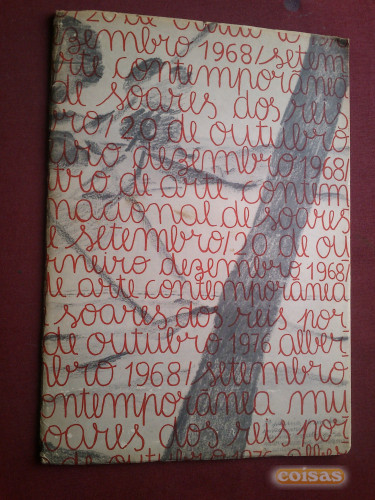 / 20 de outu
zembro 1968/ setem
rte contemporânea
de soares dos reis
ro/ 20 de outubro
iro dezembro 1968/
tro de arte contem
nacional de soares
e setembro/ 20 de ou
aneiro dezembro 1968/
e arte contemporânea
soares dos reis por
de outubro 1976 alber
bro 1968/ setembro
ontemporânea mu
oares dos reis por
20 de outubro 1976
coisas